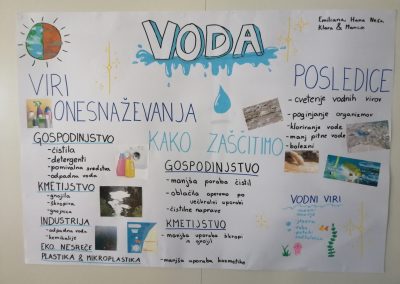 Emiliana, Hana Neža,
Klara & Manca
VODA
VIRI
ONESNAŽEVANJA
GOSPODINJSTVO
- čistila
- detergenti
- pomivalna sredstva
- odpadna voda
KMETIJSTVO
- gnojila
- škropiva
- gnojnica
INDUSTRIJA
- odpadna voda
- kemikalije
EKO. NESREČE
PLASTIKA & MIKROPLASTIKA
KAKO ZAŠČITIMO
GOSPODINJSTVO
- manjša poraba čistil
- oblačila operemo po
večkratni uporabi
- čistilne naprave
KMETIJSTVO
- manjša uporaba škropiv
in gnojil
- manjša uporaba kozmetike
POSLEDICE
- cvetenje vodnih virov
- poginjanje organizmov
- kloriranje vode
- manj pitne vode
- bolezni
VODNI VIRI
jezera
reke
potoki